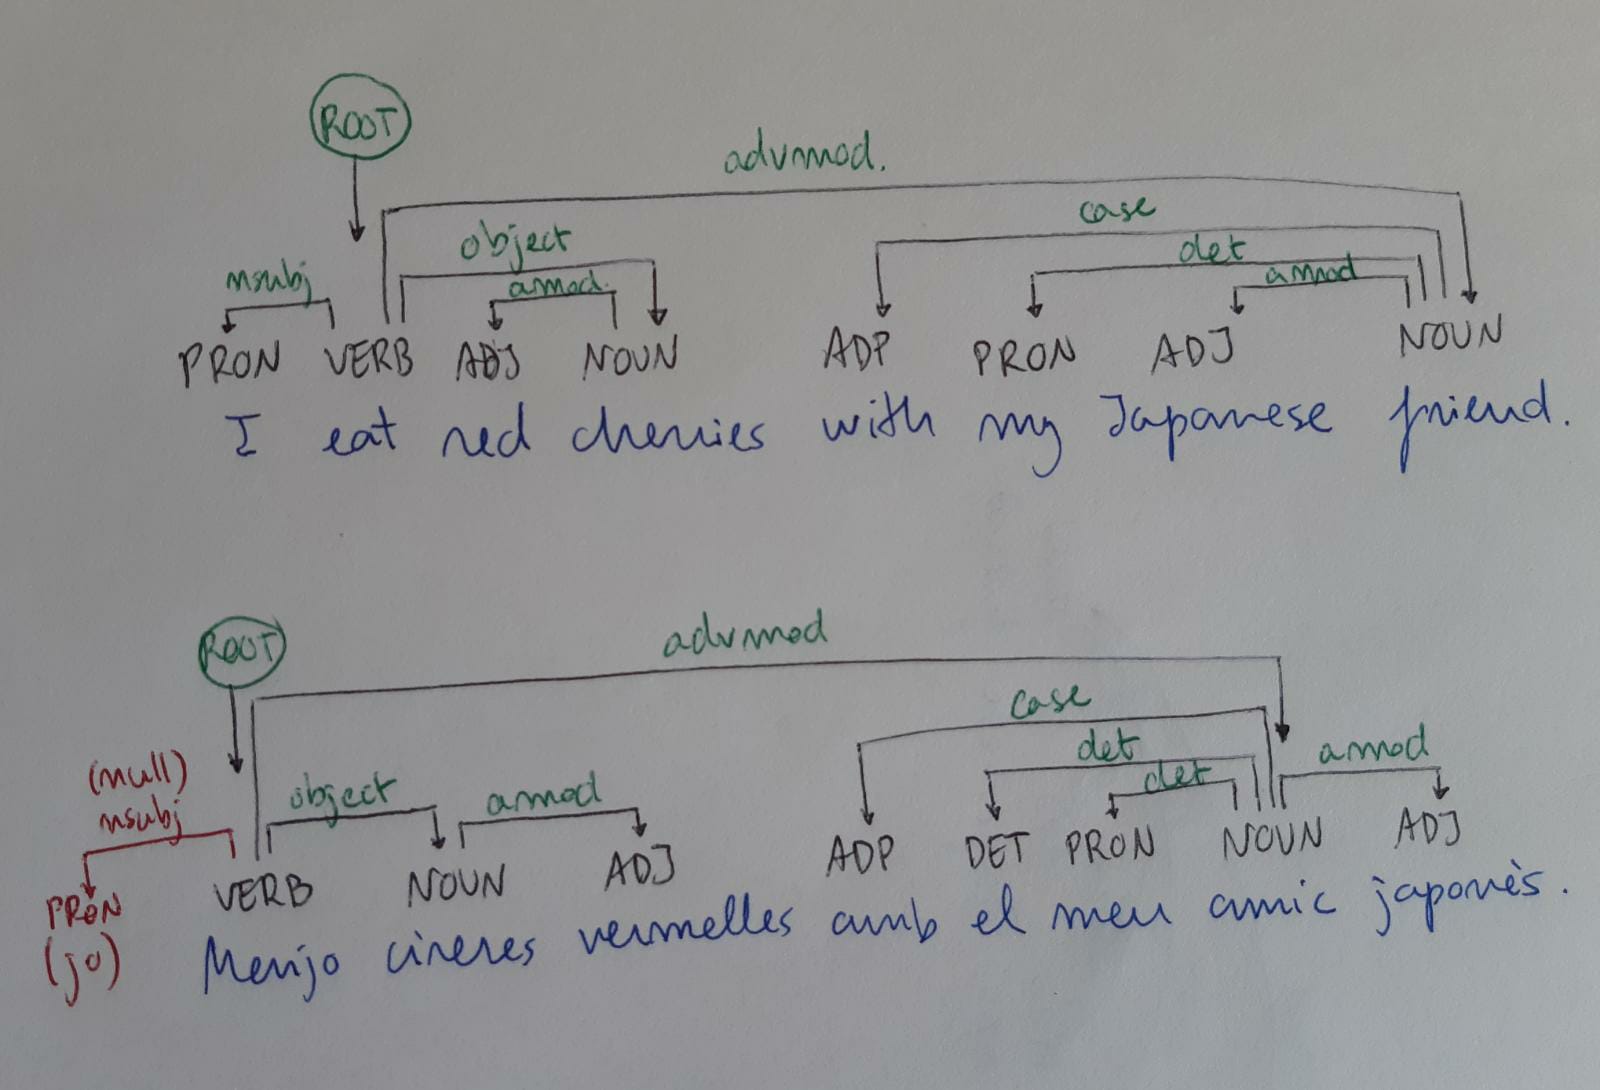 ROOT
advmod.
case
object
det
nsubj
amod.
amod
PRON VERB ADJ NOUN ADP PRON ADJ NOUN
I eat red cherries with my Japanese friend.
ROOT
advmod
case
(null)
det
amod
nsubj
object
amod
det
PRON VERB NOUN ADJ ADP DET PRON NOUN ADJ
(jo) Menjo cireres vermelles amb el meu amic japonès.